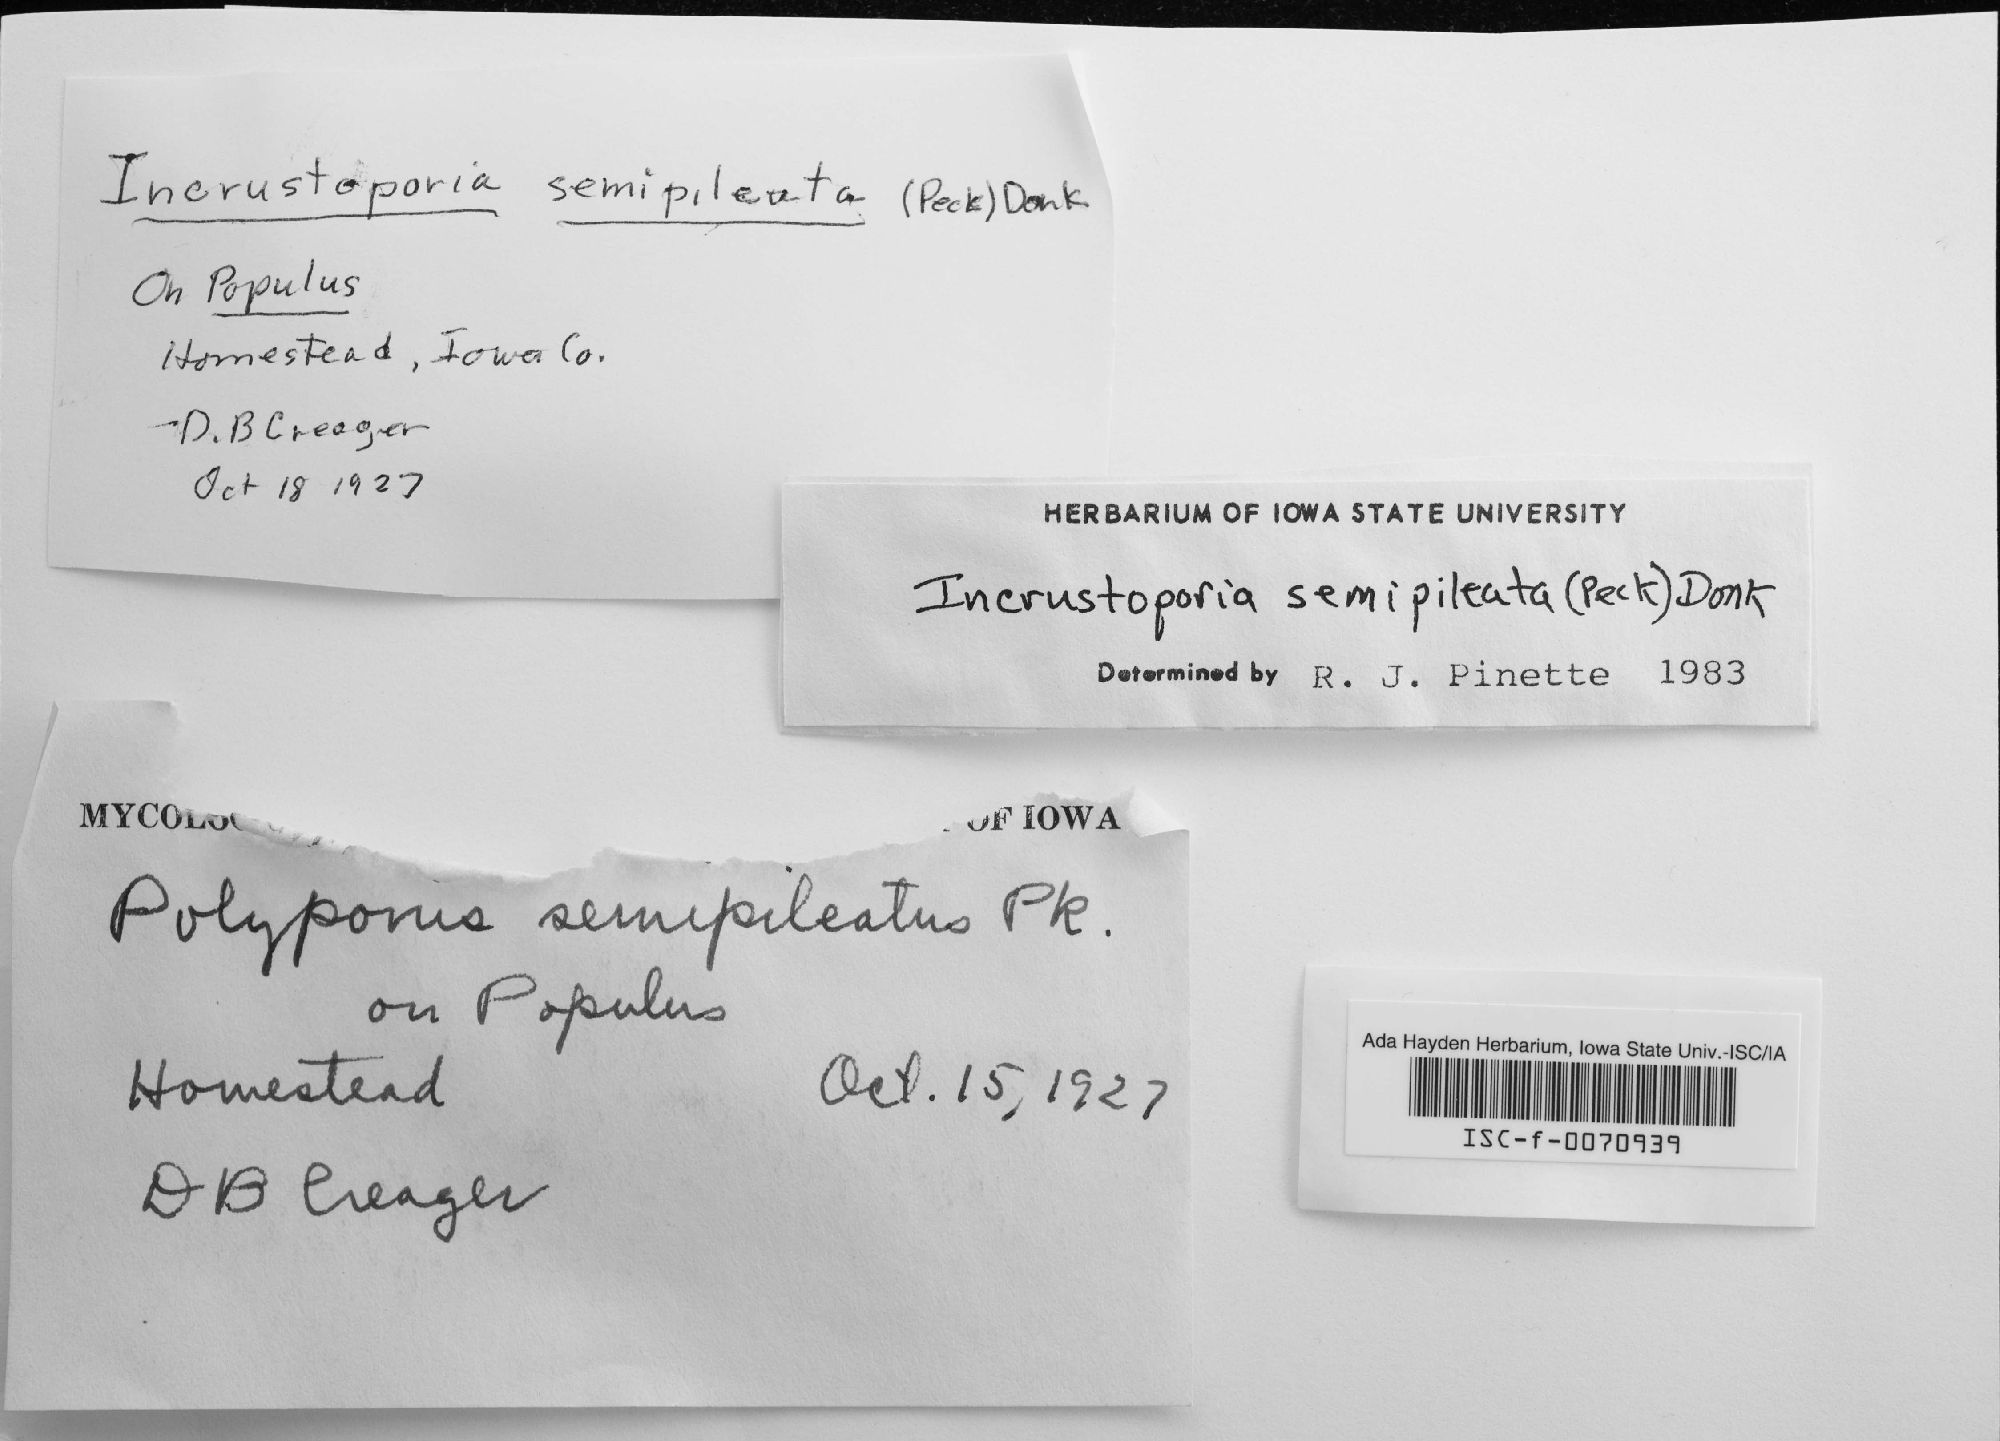 Incrustoporia semipileata (Peck) Donk
On Populus
Homestead, Iowa Co.
-D. B Creager
Oct 18 1927
HERBARIUM OF IOWA STATE UNIVERSITY
Incrustoporia semipileata (Peck) Donk
Determined by R. J. Pinette 1983
OF IOWA
Polyporus semipileatus Pk.
on Populus
Homestead Oct. 15, 1927
D B Creager
Ada Hayden Herbarium, Iowa State Univ.-ISC/IA
ISC-f-0070939